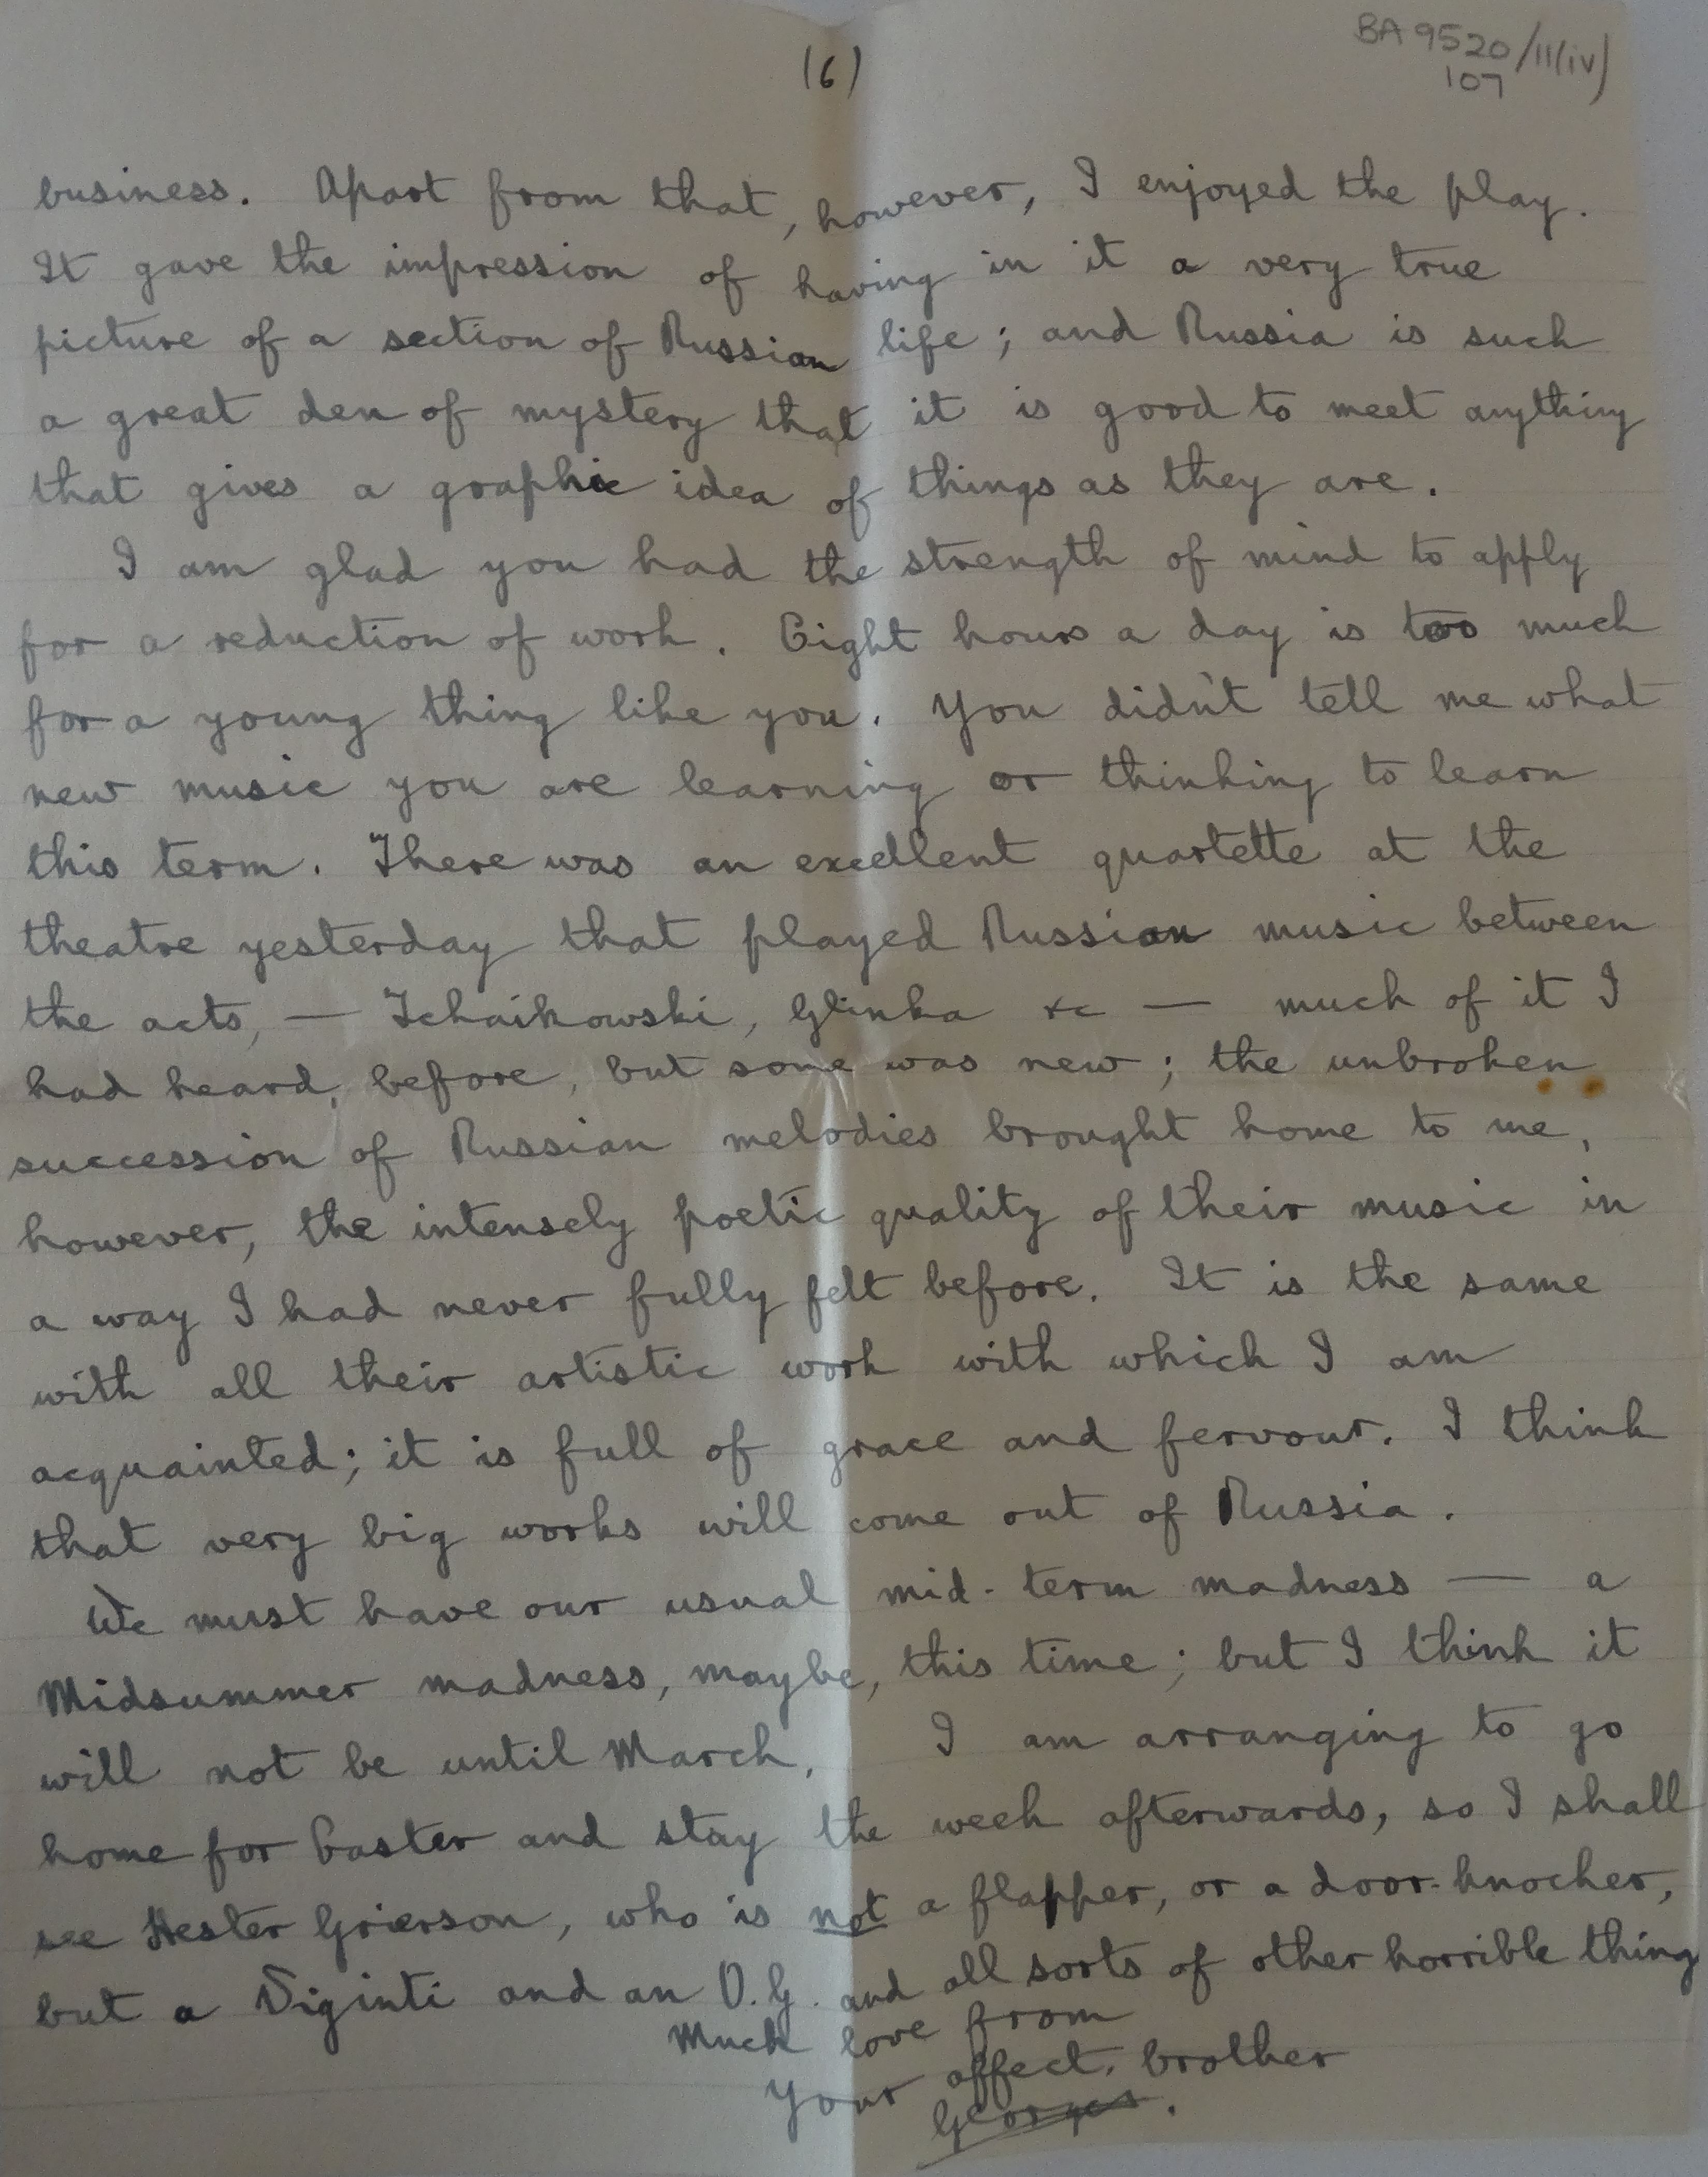 (6)
BA 9520/11(iv)
107
business. Apart from that, however, I enjoyed the play.
It gave the impression of having in it a very true
picture of a section of Russian life; and Russia is such
a great den of mystery that it is good to meet anything
that gives a graphic idea of things as they are.
I am glad you had the strength of mind to apply
for a reduction of work. Eight hours a day is too much
for a young thing like you. You didn't tell me what
new music you are learning or thinking to learn
this term. There was an excellent quartette at the
theatre yesterday that played Russian music between
the acts, — Tchaikowski, Glinka &c — much of it I
had heard, before, but some was new; the unbroken
succession of Russian melodies brought home to me,
however, the intensely poetic quality of their music in
a way I had never fully felt before. It is the same
with all their artistic work with which I am
acquainted; it is full of grace and fervour. I think
that very big works will come out of Russia.
We must have our usual mid-term madness — a
Midsummer madness, maybe, this time; but I think it
will not be until March. I am arranging to go
home for Easter and stay the week afterwards, so I shall
see Hester Grierson, who is not a flapper, or a door-knocker,
but a Viginti and an O.G. and all sorts of other horrible thing
Much love from
Your affect. brother
Georges.